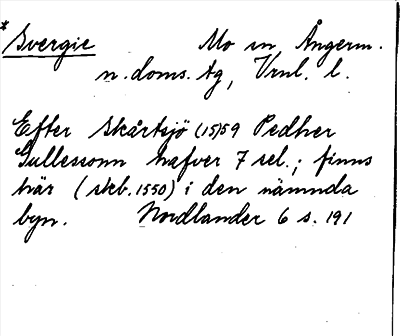 * Svergie Mo sn, Ångerm.
n. doms. tg, Vrnl. l.
Efter Skårtsjö (15)59 Pedher
Gullessonn hafver 7 sel.; finns
här (skb. 1550) i den nämnda
byn. Nordlander 6 s. 191